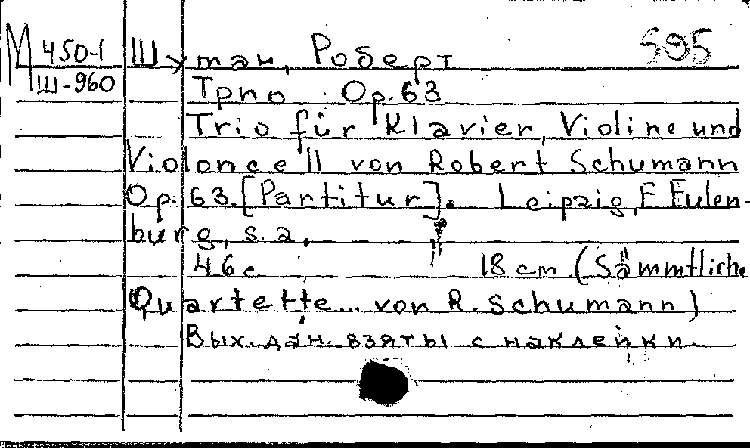 М 450-1 Шуман, Роберт 595
Ш-960 Трио Op. 63
Trio für Klavier, Violine und
Violoncell von Robert Schumann
Op. 63. [Partitur]. Leipzig, E. Eulen-
burg, s. a.
46 с. 18 cm (Sämmtliche
Quartette... von R. Schumann)
Вых. дан. взяты с наклейки.